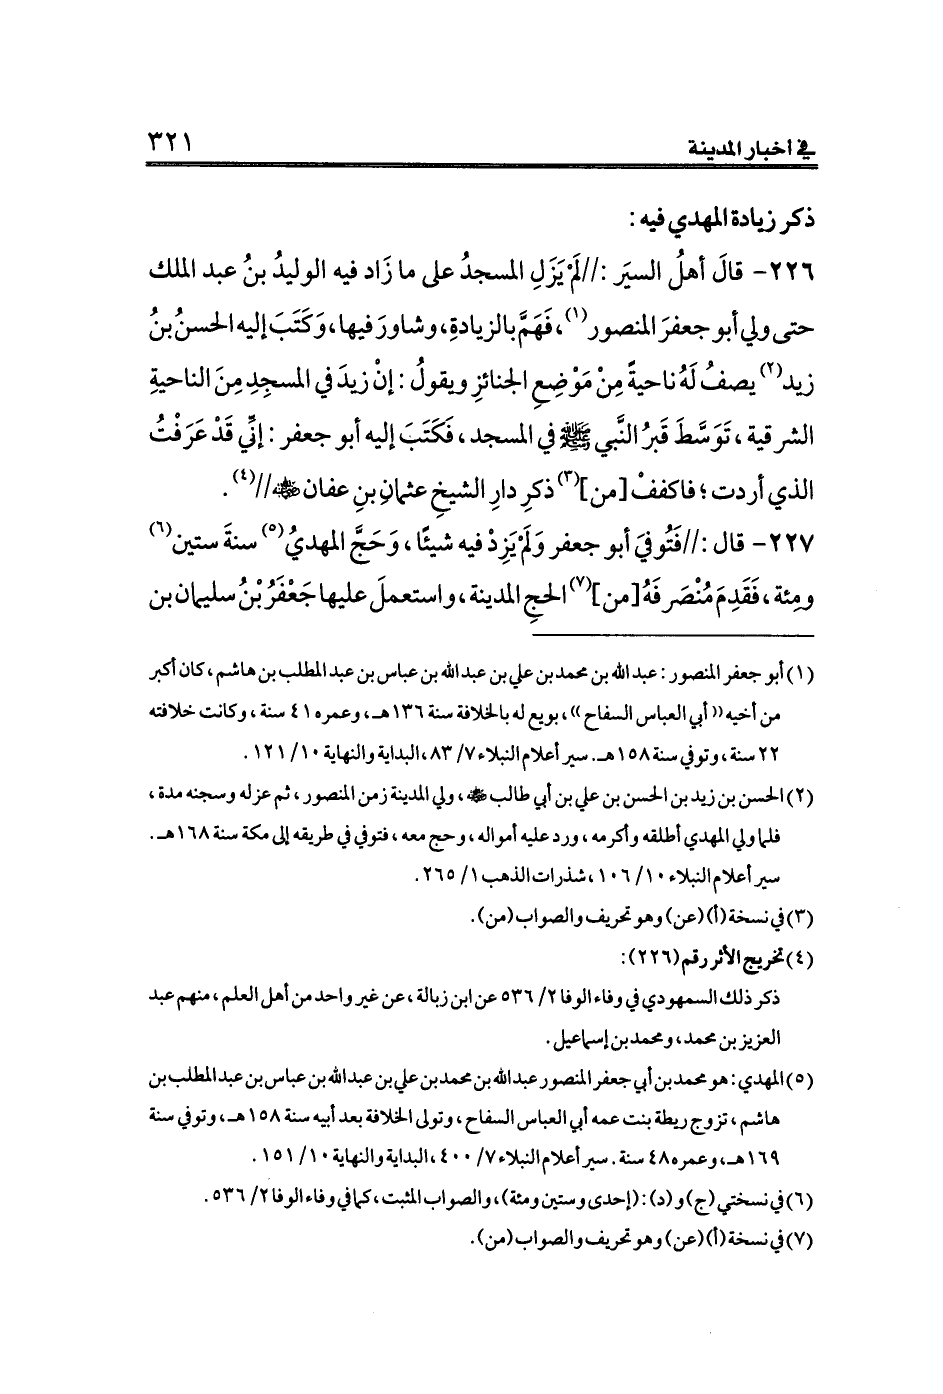 في أخبار المدينة ٣٢١
ذكر زيادة المهدي فيه :
٢٢٦- قالَ أهلُ السيَر : //لَمْ يَزَلِ المسجدُ على ما زَاد فيه الوليدُ بنُ عبد الملك
حتى ولي أبو جعفرَ المنصور(١)، فَهَمَّ بالزيادةِ، وشاورَ فيها، وَكَتَبَ إليه الحسنُ بنُ
زيد(٢) يصفُ لَهُ ناحيةً مِنْ مَوْضِعِ الجنائزِ ويقولُ : إنْ زيدَ في المسجدِ مِنَ الناحيةِ
الشرقية ، تَوَسَّطَ قبرُ النَّبي ﷺ في المسجد ، فَكَتَبَ إليه أبو جعفر : إنِّي قَدْ عَرَفْتُ
الذي أردت ؛ فاكففْ [من](٣) ذكرِ دارِ الشيخِ عثمانِ بنِ عفان ﷺ//(٤) .
٢٢٧- قال : //فَتُوفيَ أبو جعفر وَلَمْ يَزِدْ فيه شيئًا ، وَحَجَّ المهديُ(٥) سنةَ ستين(٦)
ومِئة ، فَقَدِمَ مُنْصَرَفَهُ [من](٧) الحجِ المدينة ، واستعملَ عليها جَعْفَرُ بْنُ سليمان بن
(١) أبو جعفر المنصور : عبدالله بن محمد بن علي بن عبدالله بن عباس بن عبد المطلب بن هاشم ، كان أكبر
من أخيه «أبي العباس السفاح» ، بويع له بالخلافة سنة ١٣٦هـ، وعمره ٤١ سنة ، وكانت خلافته
٢٢ سنة ، وتوفي سنة ١٥٨هـ. سير أعلام النبلاء ٧/ ٨٣ ، البداية والنهاية ١٠/ ١٢١ .
(٢) الحسن بن زيد بن الحسن بن علي بن أبي طالب ﷺ ، ولي المدينة زمن المنصور ، ثم عزله وسجنه مدة ،
فلما ولي المهدي أطلقه وأكرمه ، ورد عليه أمواله ، وحج معه ، فتوفي في طريقه إلى مكة سنة ١٦٨هـ.
سير أعلام النبلاء ١٠/ ١٠٦ ، شذرات الذهب ١/ ٢٦٥ .
(٣) في نسخة (أ) (عن) وهو تحريف والصواب (من).
(٤) تخريج الأثر رقم (٢٢٦):
ذكر ذلك السمهودي في وفاء الوفا ٢/ ٥٣٦ عن ابن زبالة ، عن غير واحد من أهل العلم ، منهم عبد
العزيز بن محمد ، ومحمد بن إسماعيل .
(٥) المهدي : هو محمد بن أبي جعفر المنصور عبدالله بن محمد بن علي بن عبدالله بن عباس بن عبد المطلب بن
هاشم ، تزوج ريطة بنت عمه أبي العباس السفاح ، وتولى الخلافة بعد أبيه سنة ١٥٨هـ، وتوفي سنة
١٦٩هـ، وعمره ٤٨ سنة . سير أعلام النبلاء ٧/ ٤٠٠ ، البداية والنهاية ١٠/ ١٥١ .
(٦) في نسختي (ج) و (د) : (إحدى وستين ومئة)، والصواب المثبت ، كما في وفاء الوفا ٢/ ٥٣٦ .
(٧) في نسخة (أ) (عن) وهو تحريف والصواب (من).